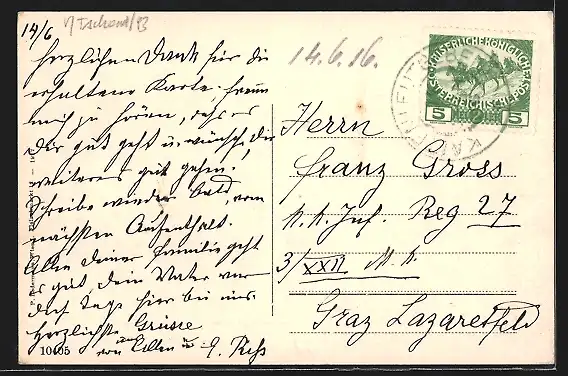 14/6
14.6.16.
Herzlichen Dank für die
erhaltene Karte. freue
mich zu hören, daß es
dir gut geht u. wünsche dir
weiteres gut gehen.
Schreibe wieder bald, vom
nächsten Aufenthalt.
Allen deiner Familie geht
es gut, dein Vater war
drei Tage hier bei uns.
Herzlichste Grüsse
von Allen u.
10405
KAISERLICHE KÖNIGLICHE
ÖSTERREICHISCHE POST
5 5
Herrn
Franz Gross
k. k. Inf. Reg 27
3/XXII M. k
Graz Lazarettfeld